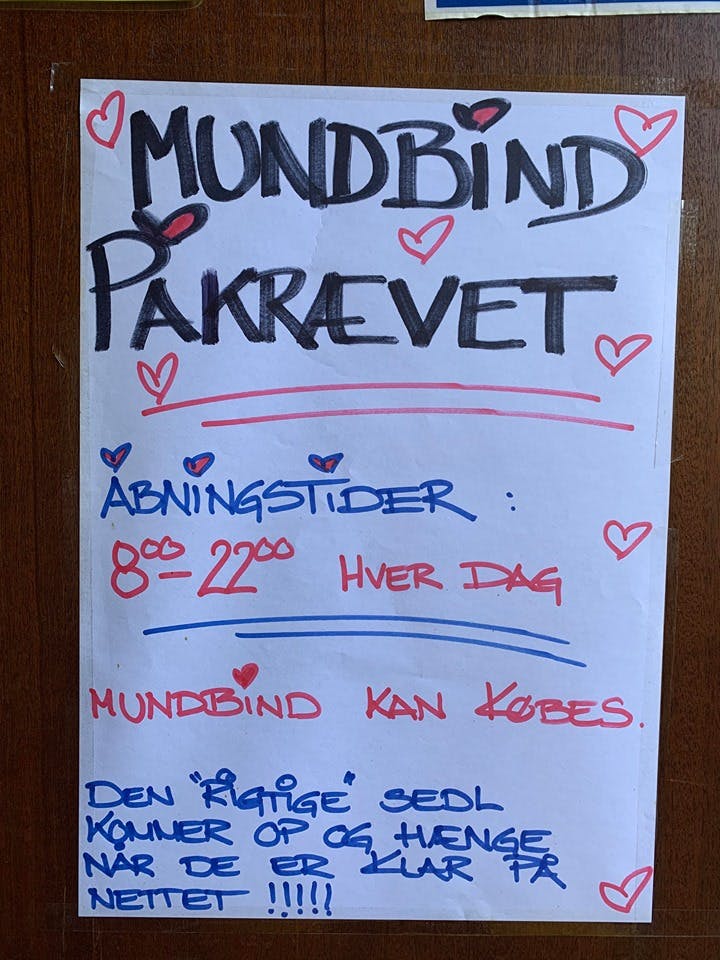 MUNDBIND
PÅKRÆVET
ÅBNINGSTIDER :
8⁰⁰ - 22⁰⁰ HVER DAG
MUNDBIND KAN KØBES.
DEN "RIGTIGE" SEDL
KOMMER OP OG HÆNGE
NÅR DE ER KLAR PÅ
NETTET !!!!!